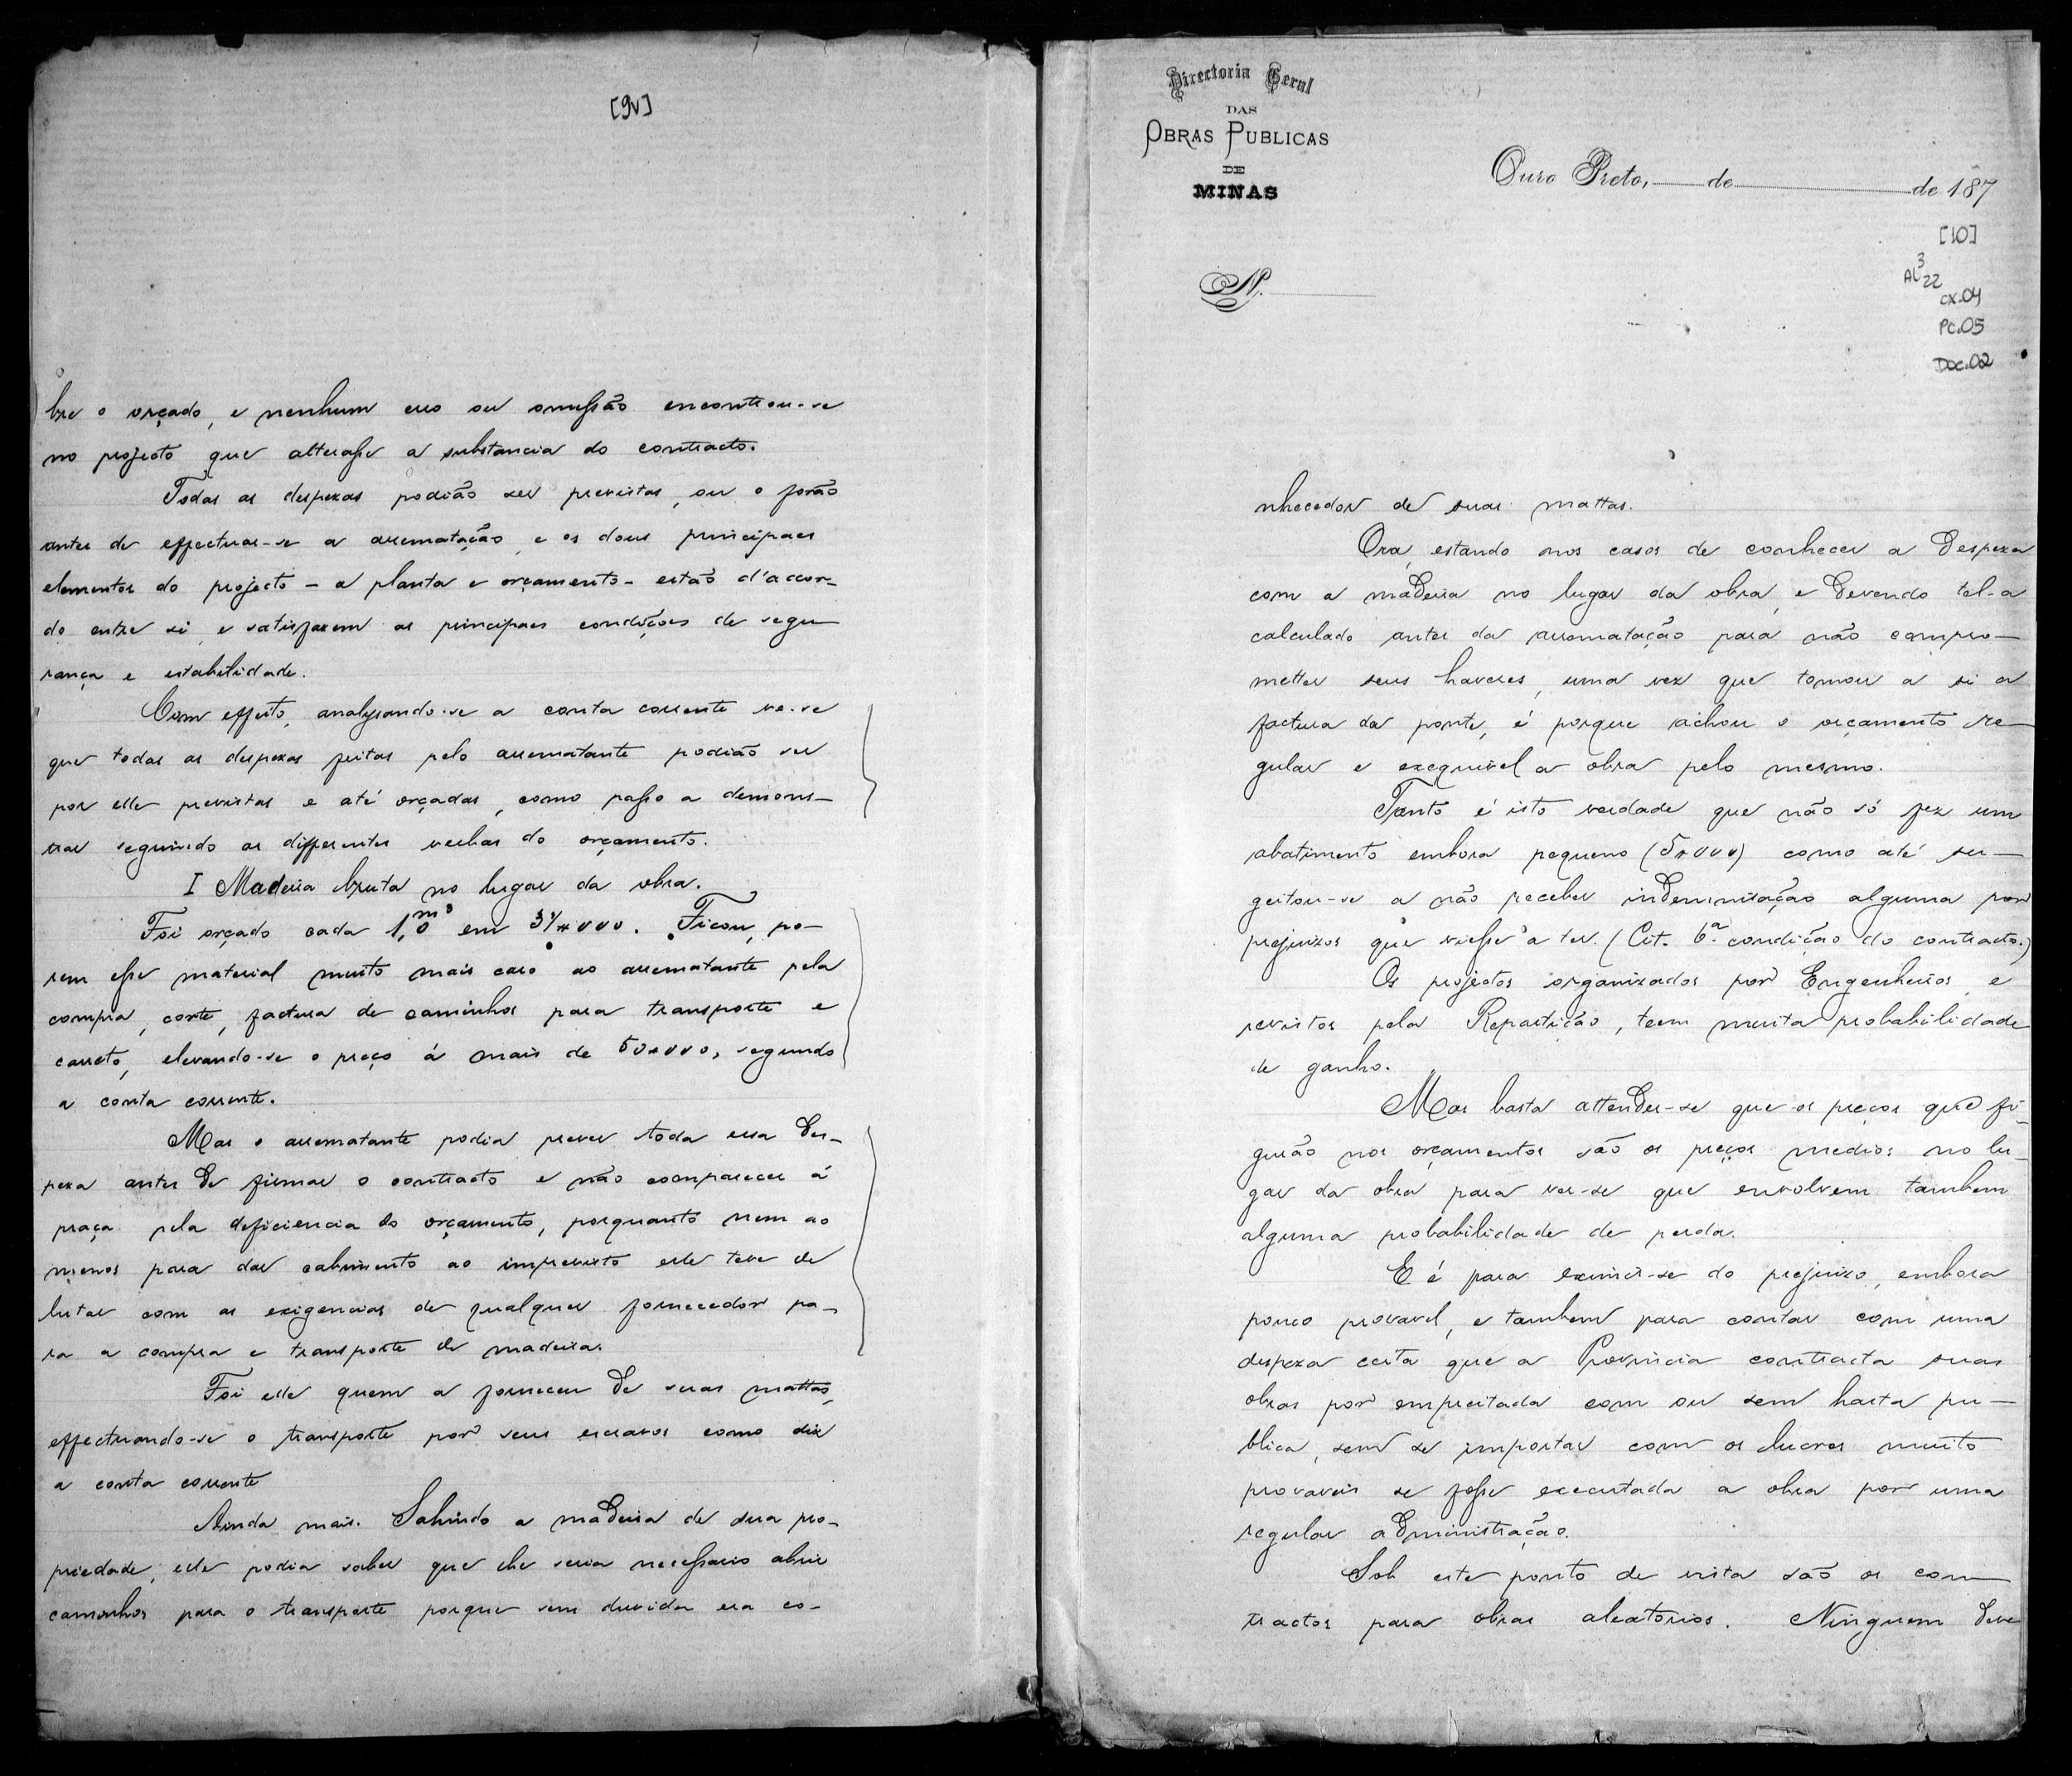 [9v]
bre o orçado, e nenhum erro ou omissão encontrou-se
no projecto que alterasse a substancia do contracto.
Todas as despezas podião ser previstas, ou o forão
antes de effectuar-se a arrematação, e os dous principaes
elementos do projecto - a planta e orçamento - estão d'accor-
do entre si, e satisfazem as principaes condições de segu-
rança e estabilidade.
Com effeito, analysando-se a conta corrente ve-se
que todas as despezas feitas pelo arrematante podião ser
por elle previstas e até orçadas, como passo a demons-
trar seguindo as differentes verbas do orçamento.
I Madeira bruta no lugar da obra.
Foi orçado cada 1,0 m³ em 34$000. Ficou, po-
rem esse material muito mais caro ao arrematante pela
compra, corte, factura de caminhos para transporte e
carreto, elevando-se o preço á mais de 50$000, segundo
a conta corrente.
Mas o arrematante podia prever toda essa des-
peza antes de firmar o contracto e não comparecer á
praça pela deficiencia do orçamento, porquanto nem ao
menos para dar cabimento ao imprevisto elle teve de
lutar com as exigencias de qualquer fornecedor pa-
ra a compra e transporte de madeira.
Foi elle quem a forneceu de suas mattas,
effectuando-se o transporte por seus escravos como diz
a conta corrente
Ainda mais. Sahindo a madeira de sua pro-
priedade, elle podia saber que lhe seria necessario abrir
caminhos para o transporte porque sem duvida era co-
Directoria Geral
DAS
OBRAS PUBLICAS
DE
MINAS
Ouro Preto, de de 187
[10]
AL³22
CX.04
PC.05
DOC.02
N.
nhecedor de suas mattas.
Ora, estando nos casos de conhecer a despeza
com a madeira no lugar da obra, e devendo tel-a
calculado antes da arrematação para não compro-
metter seus haveres, uma vez que tomou a si a
factura da ponte, é porque achou o orçamento re-
gular e exequivel a obra pelo mesmo.
Tanto é isto verdade que não só fez um
abatimento embora pequeno (5$000) como até su-
geitou-se a não receber indemnisação alguma por
prejuizos que viesse a ter. (Cit. 6.ª condição do contracto.)
Os projectos organizados por Engenheiros, e
revistos pela Repartição, teem muita probabilidade
de ganho.
Mas basta attender-se que os preços que fi-
gurão nos orçamentos são os preços medios no lu-
gar da obra para ver-se que envolvem tambem
alguma probabilidade de perda.
E é para eximir-se do prejuizo, embora
pouco provavel, e tambem para contar com uma
despeza certa que a Provincia contracta suas
obras por empreitada com ou sem hasta pu-
blica, sem se importar com os lucros muito
provaveis se fosse executada a obra por uma
regular administração.
Sob este ponto de vista são os con-
tractos para obras aleatorios. Ninguem deve